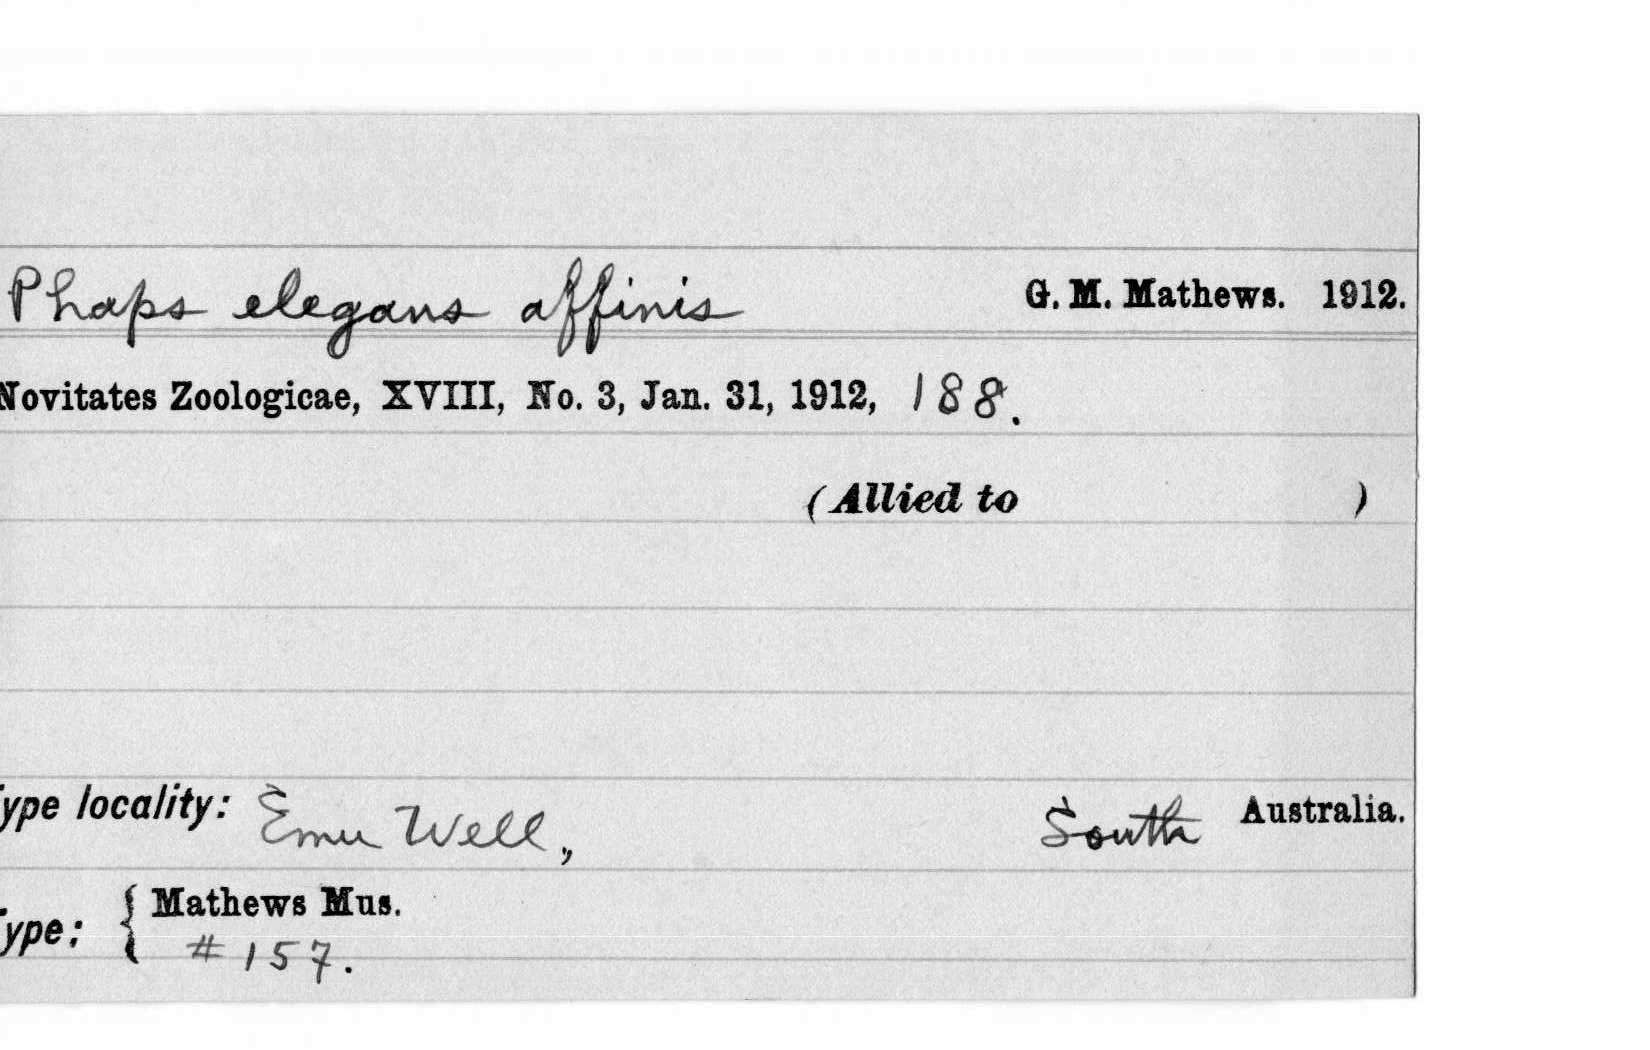 Phaps elegans affinis G. M. Mathews. 1912.
Novitates Zoologicae, XVIII, No. 3, Jan. 31, 1912, 188.
(Allied to )
Type locality: Emu Well, South Australia.
Type: { Mathews Mus.
# 157.